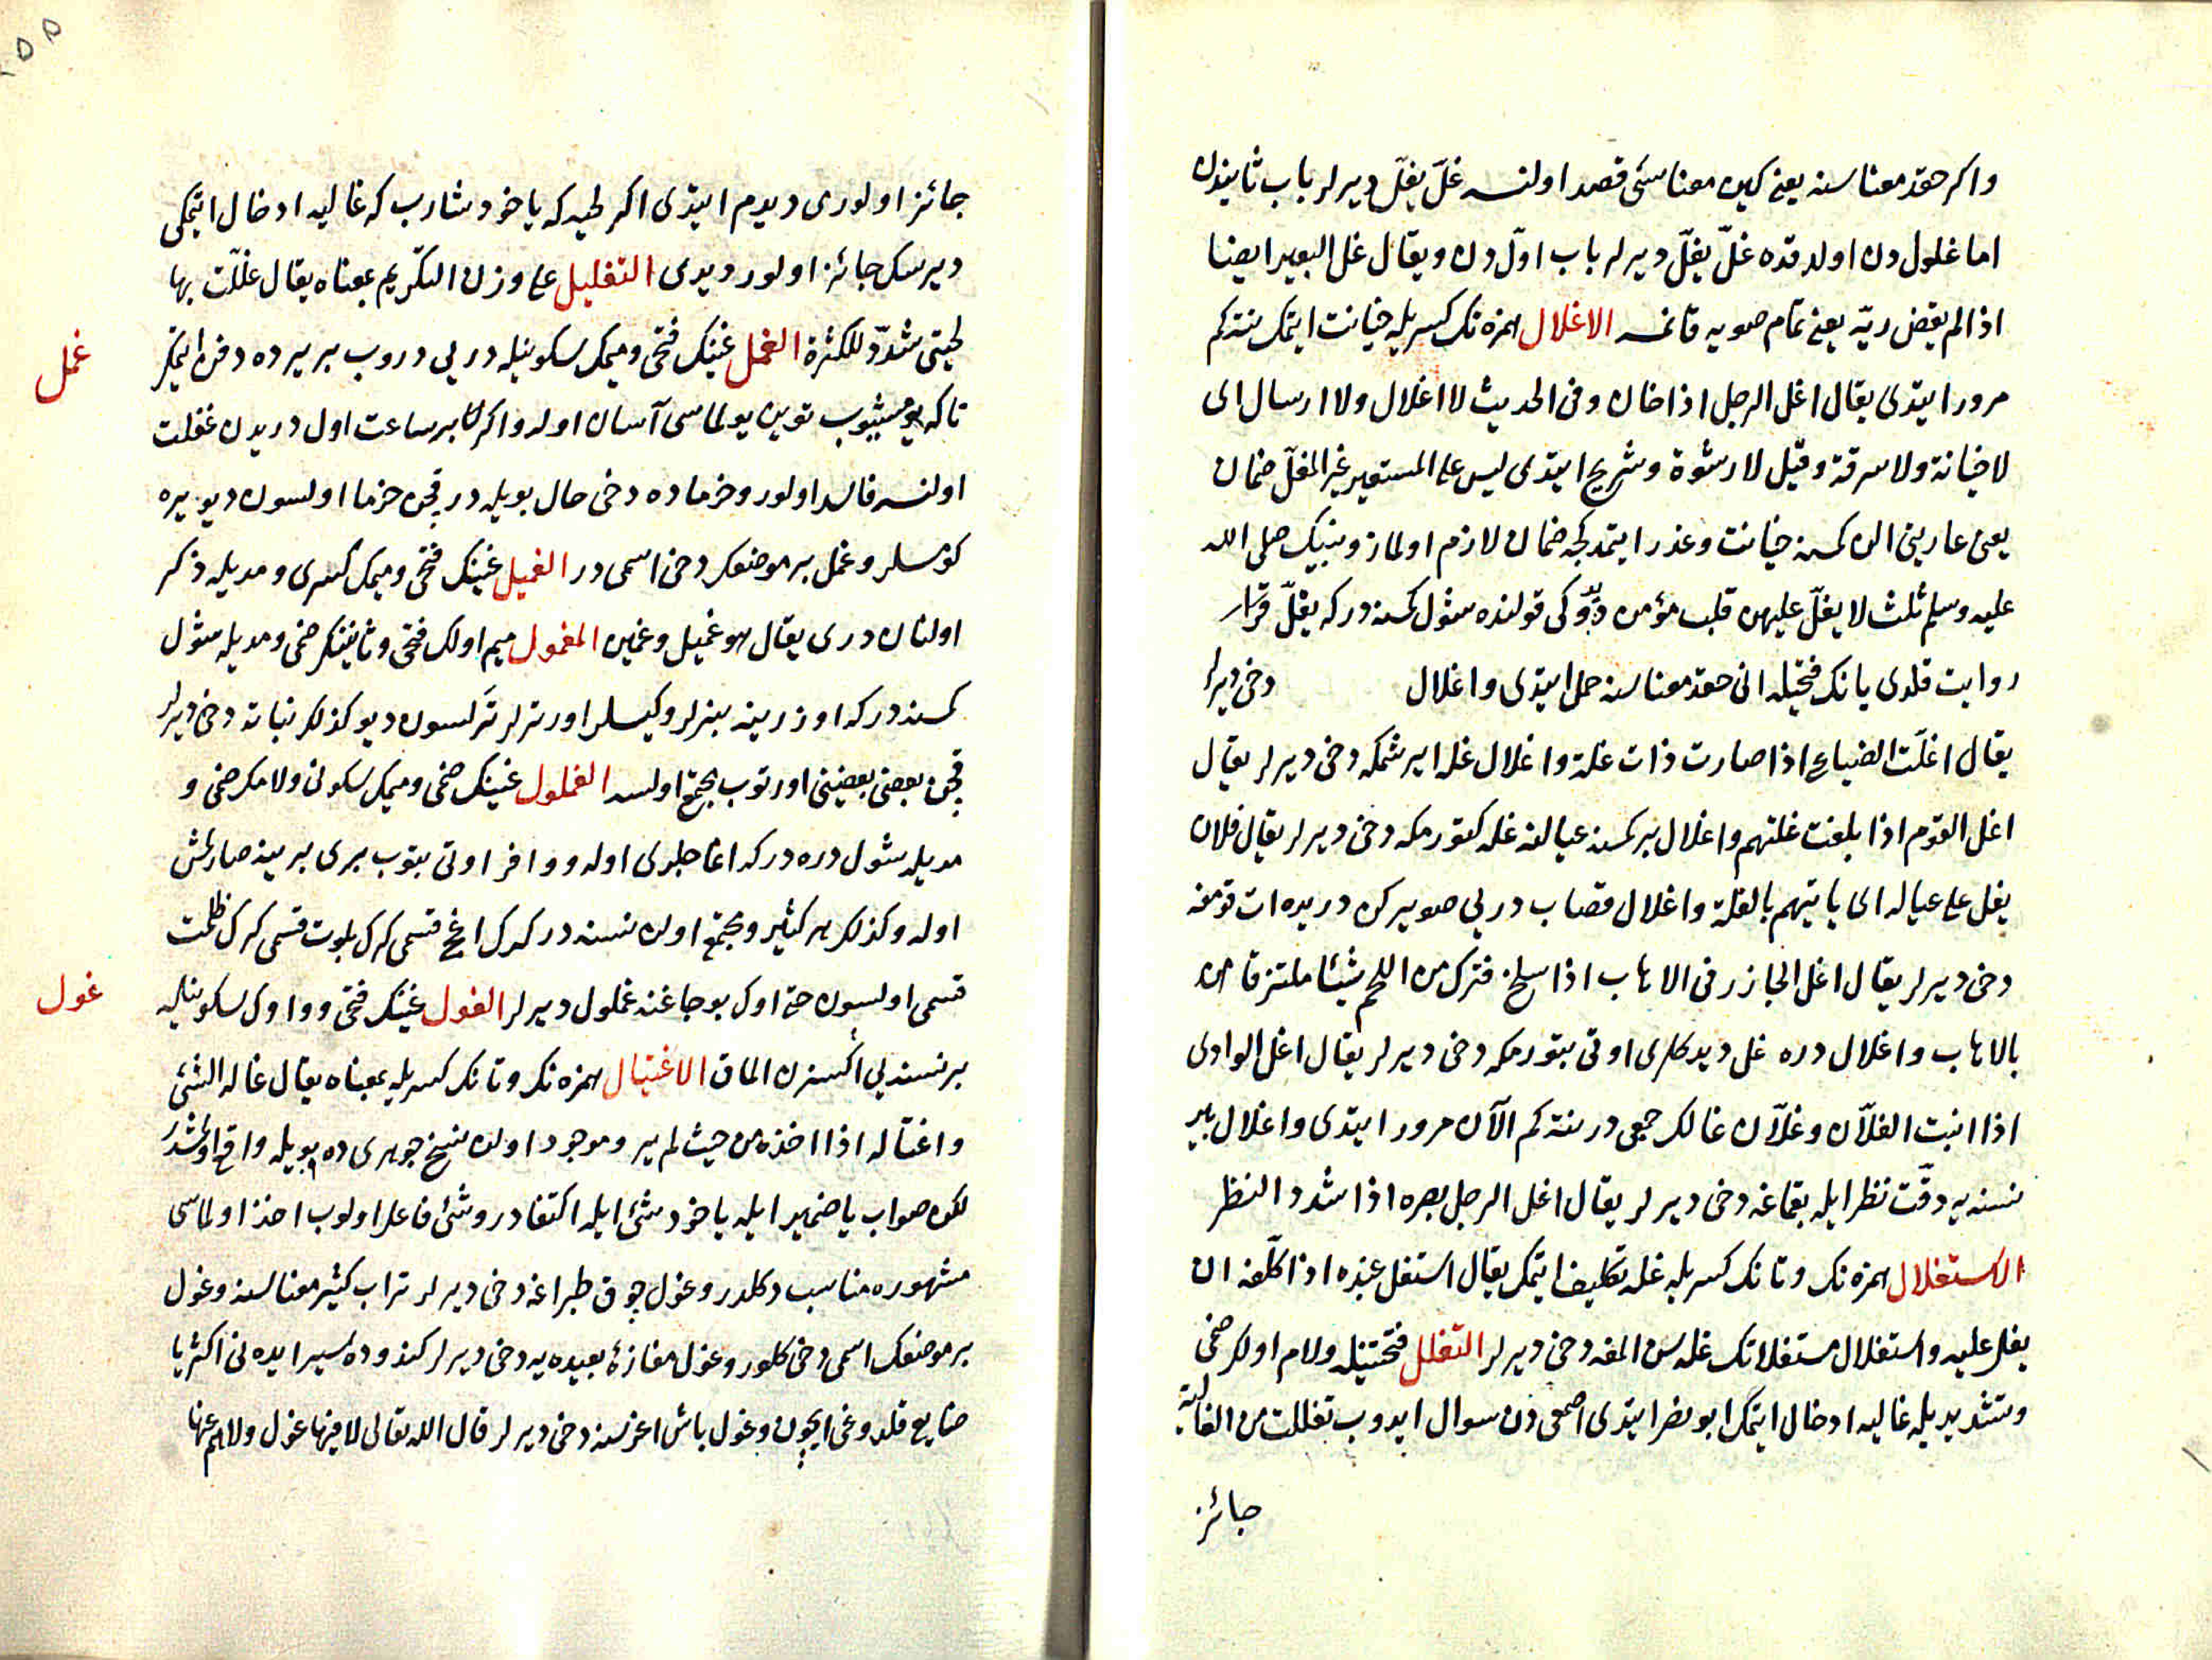 واكر حقد معناسنه يعنى كين معناسى قصد اولنسه غلّ يغلّ ديرلر باب ثانيدن
اما غلول دن اولدقده غلّ يغلّ ديرلر باب اوّل دن ويقال غل البعير ايضا
اذا لم يقض ريّه يعنى تمام صويه قانمسه الاغلال همزه نك كسريله خيانت ايتمك نتكم
مرور ايتدى يقال اغل الرجل اذا خان وفى الحديث لا اغلال ولا ارسال اى
لا خيانة ولا سرقة وقيل لا رشوة وشريح ايتدى ليس على المستعير غير المغلّ ضمان
يعنى عاريتى الن كمسنه خيانت وغدر ايتمدكجه ضمان لازم اولماز ونبينك صلى الله
عليه وسلم ثلث لا يغلّ عليهن قلب مؤمن ديدوكى قولنده شول كمسنه دركه يغلّ
روايت قلدى يانك فتحيله انى حقد معناسنه حمل ايتدى واغلال دخى ديرلر
يقال اغلّت الضياع اذا صارت ذات غلة واغلال غله ايرشمكه دخى ديرلر يقال
اغل القوم اذا بلغت غلتهم واغلال بر كمسنه عيالنه غله كتورمكه دخى ديرلر يقال فلان
يغل على عياله اى ياتيهم بالغلة واغلال قصاب درى صويركن دريده ات قومغه
دخى ديرلر يقال اغل الجازر فى الاهاب اذا سلخ فترك من اللحم شيئا ملتزقا من
بالاهاب واغلال دره غل ديدكلرى اوتى بتورمكه دخى ديرلر يقال اغل الوادى
اذا انبت الغلّان وغلّان غالك جمعى در نتكم الآن مرور ايتدى واغلال بر
نسنه يه دقّت نظر ايله بقماغه دخى ديرلر يقال اغل الرجل بصره اذا شدد النظر
الاستغلال همزه نك وتانك كسريله غله تكليف ايتمك يقال استغل عبده اذا كلّفه ان
يغل عليه واستغلال مستغلاتك غله سن المغه دخى ديرلر التغلل فتحتينله ولام اولك ضمى
وتشديديله غاليه ادخال ايتمك ابو نصر ايتدى اصمعى دن سوال ايدوب تغللت من الغالية
جائز
جائز اولورى ديدم ايتدى اكر لحيه كه ياخود شاربكه غاليه ادخال ايتمكى
ديرسك جائز اولور ديدى التغليل على وزن التكريم بمعناه يقال غلّلت بها
لحيتى شدّد للكثرة الغمل غينك فتحى وميمك سكونيله درىي دروب بر يرده دفن ايتمك
تاكه توين يولماسى آسان اوله واكر بر ساعت اول دريدن غفلت
اولنسه فاسد اولور وخرماده دخى حال بويله در قچن خرما اولسون ديو يره
كومسلر وغمل بر موضعك دخى اسمى در الغميل غينك فتحى وميمك كسرى ومديله ذكر
اولنان درى يقال هو غميل وغمين المغمول ميم اولك فتحى وثانينك ضمى ومديله شول
كمسنه دركه اوزرينه بزلر وكيسلر اورترلر ترلسون ديو كذلك نباته دخى ديرلر
قچن بعضى بعضينى اورتوب مجتمع اولسه الغملول غينك ضمى وميمك سكونى ولامك ضمى و
مديله شول دره دركه اغاجلرى اوله ووافر اوتى بتوب برى برينه صارلمش
اوله وكذلك هر كثير ومجتمع اولن نسنه در كرك اغج قسمى كرك بلوت قسمى كرك ظلمت
قسمى اولسون حتى اوك بوجاغنه غملول ديرلر الغول غينك فتحى وواوك سكونيله
بر نسنه يى اكسزن المق الاغتيال همزه نك وتانك كسريله بمعناه يقال غاله الشئ
واغتاله اذا اخذه من حيث لم يدر وموجود اولن نسخ جوهرى ده بويله واقع اولمشدر
لكن صواب يا ضمير ايله ياخود شئ ايله اكتفادر وشئ فاعل اولوب اخذ اولماسى
مشهوره مناسب دكلدر وغول چوق طپراغه دخى ديرلر تراب كثير معناسنه وغول
بر موضعك اسمى دخى كلور وغول مفازۀ بعيده يه دخى ديرلر كندوده سير ايده نى اكثريا
ضايع قلدوغى ايچون وغول باش اغرسنه دخى ديرلر قال الله تعالى لا فيها غول ولاهم عنها
غمل
غول